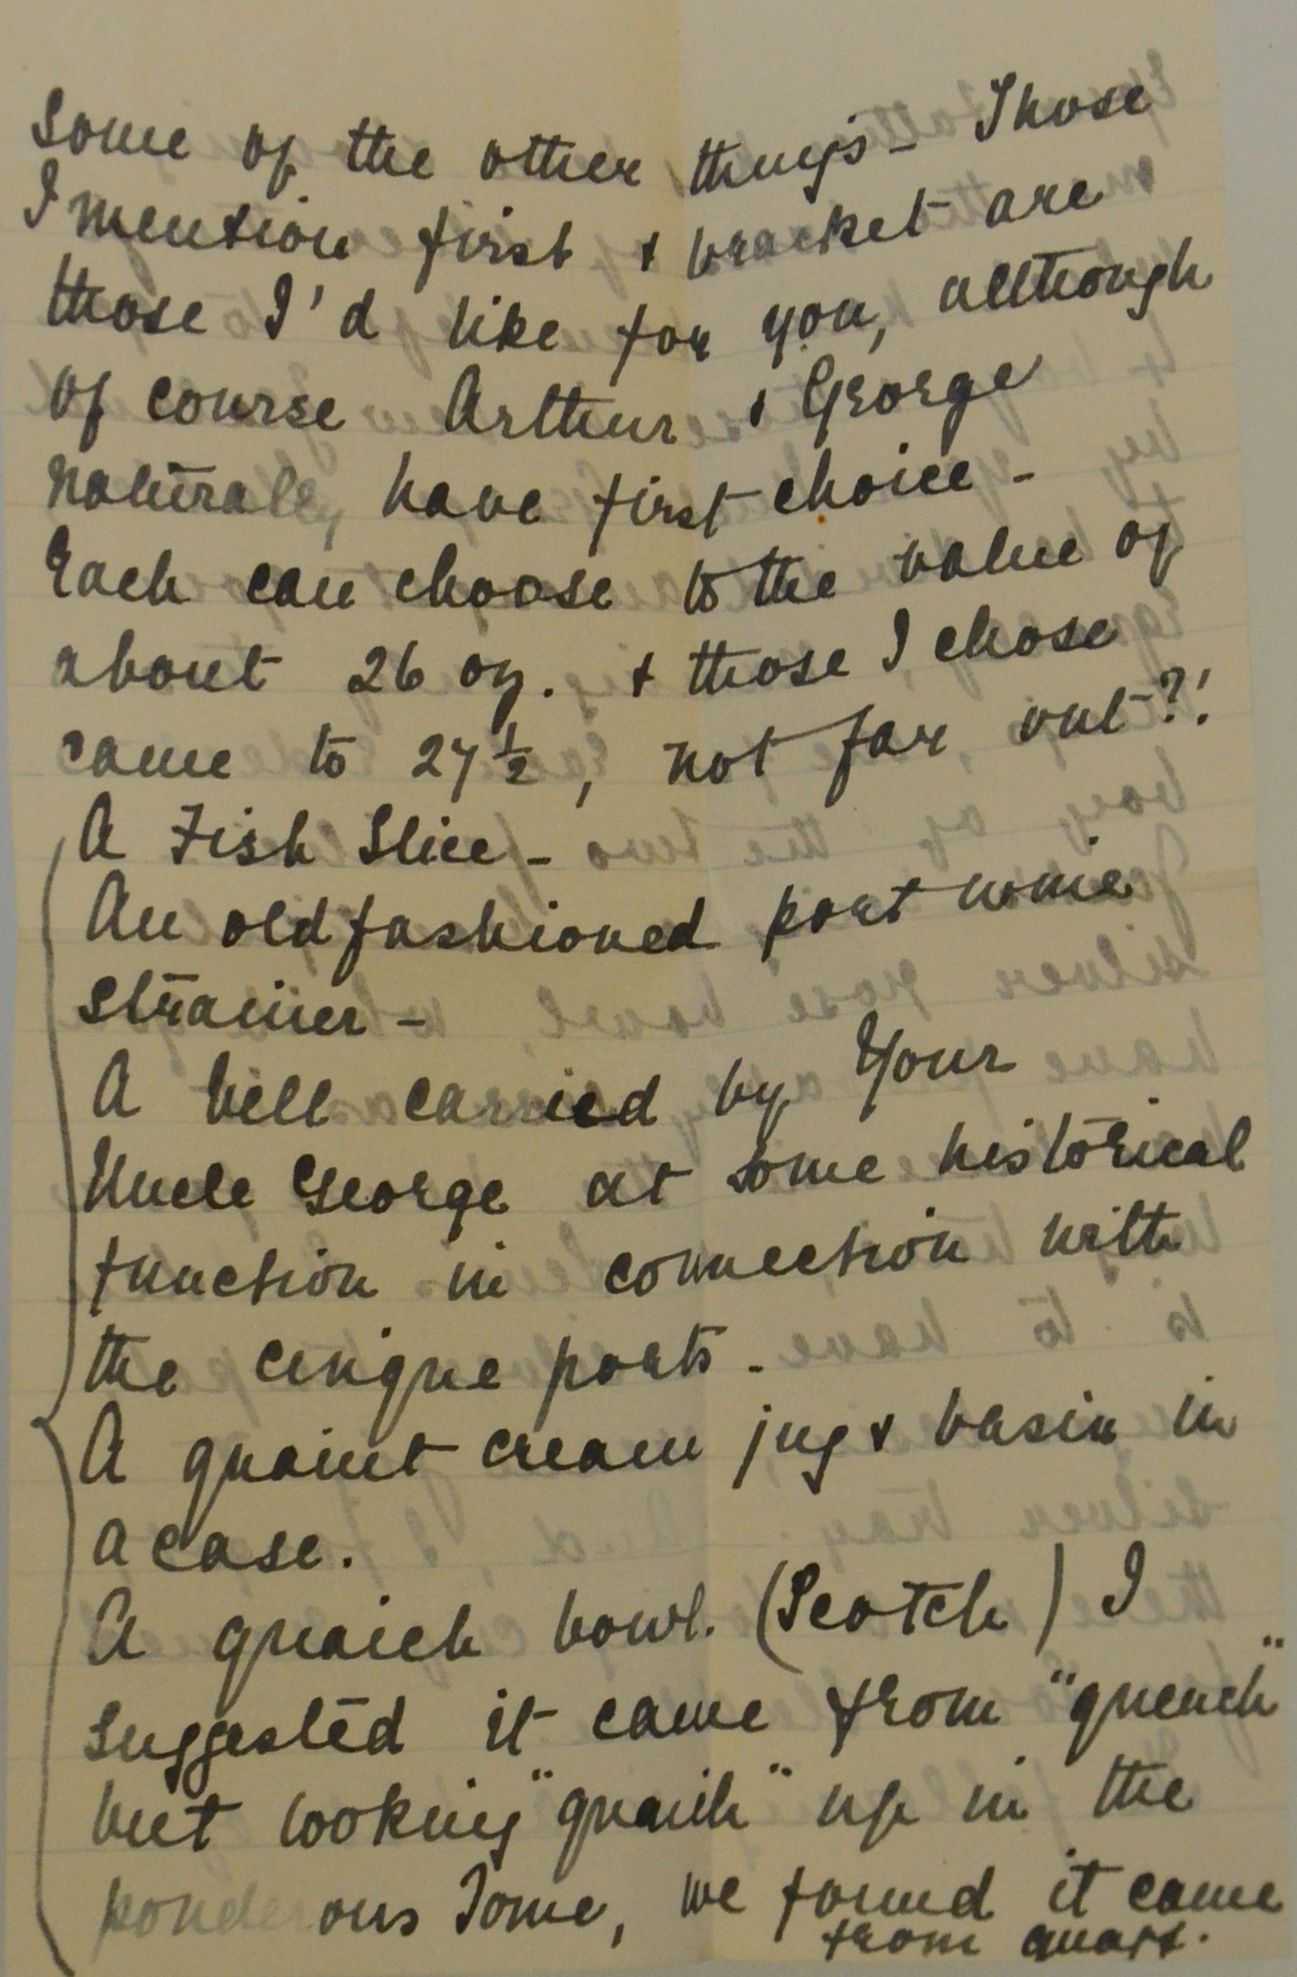 Some of the other things - Those
I mention first & bracket are
those I'd like for you, although
of course Arthur & George
naturally have first choice -
Each can choose to the value of
about 26 oz. & those I chose
came to 27½, not far out?!
A Fish Slice -
An old fashioned port wine
strainer -
A bell carried by Your
Uncle George at some historical
function in connection with
the cinque ports -
A quaint cream jug & basin in
a case.
A quaich bowl. (Scotch) I
suggested it came from "quench"
but looking "quaich" up in the
ponderous Tome, we found it came
from quaff.